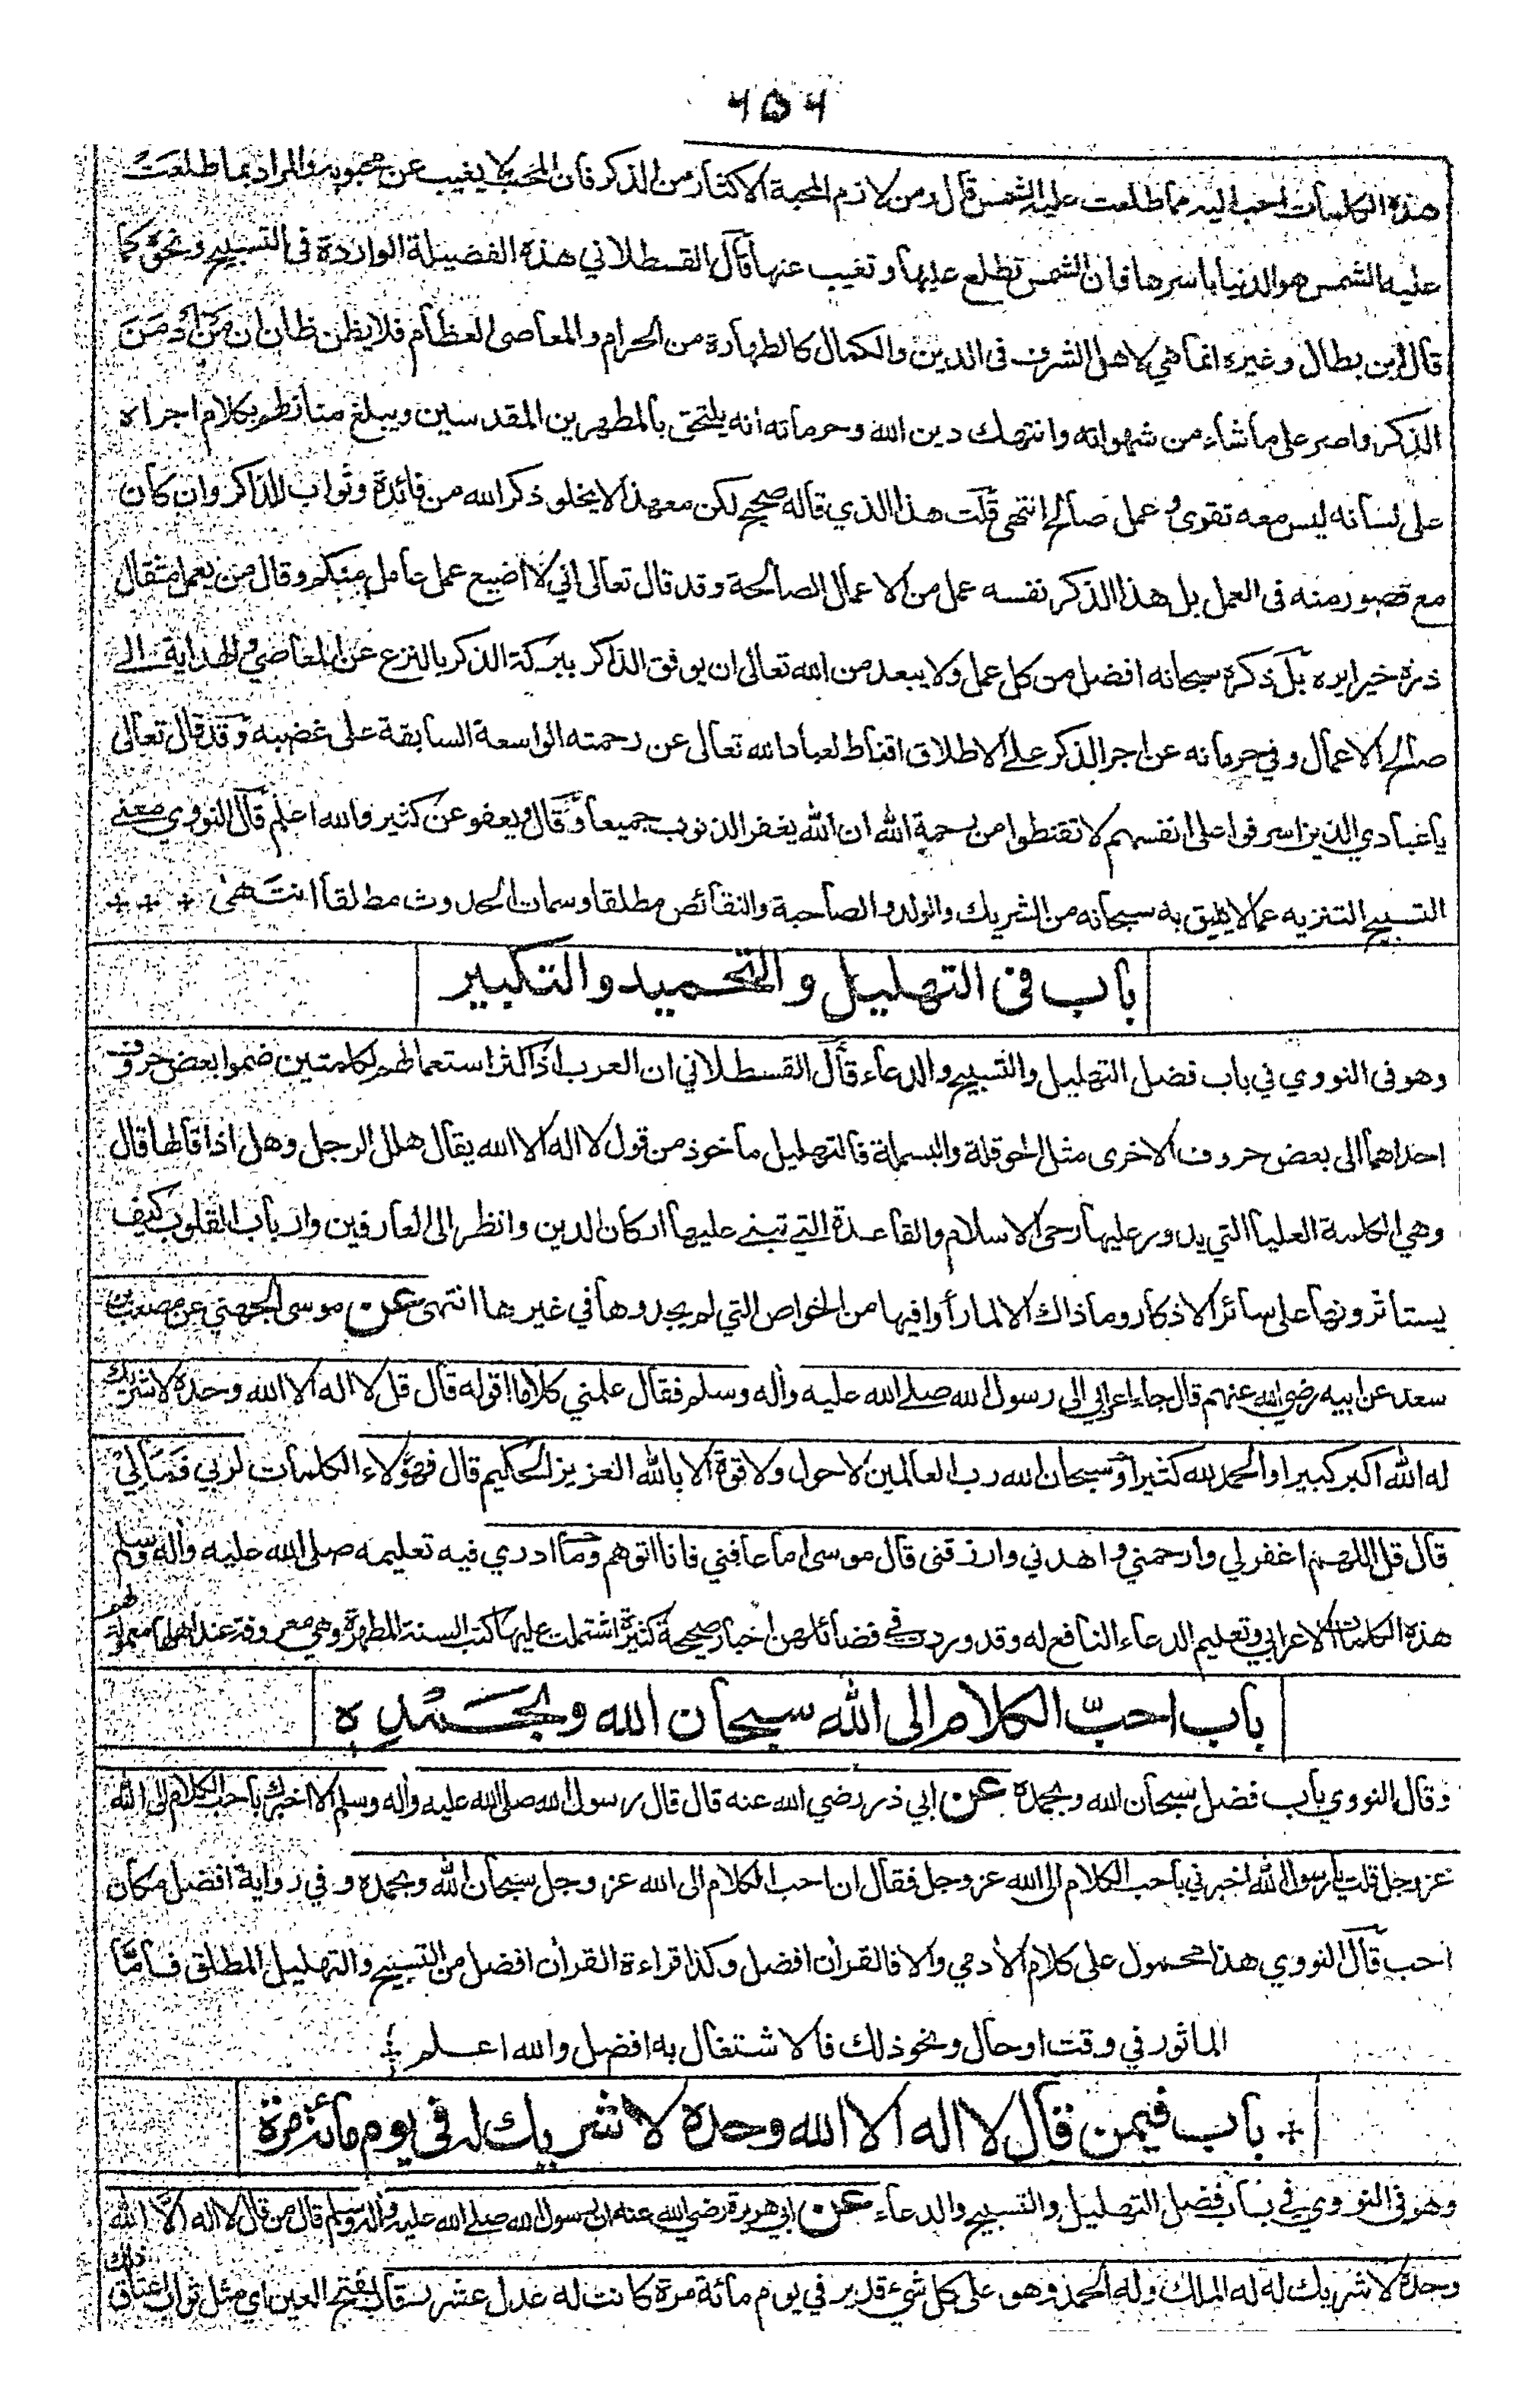 ٦٥٦
هذه الكلمات احب اليه مما طلعت عليه الشمس قال ومن لازم المحبة الاكثار من الذكر فان المحب لا يغيب عن محبوبه والمراد بما طلعت
عليه الشمس هو الدنيا باسرها فان الشمس تطلع عليها وتغيب عنها قال القسطلاني هذه الفضيلة الواردة فى التسبيح ونحوه كما
قال ابن بطال وغيره انما هي لاهل الشرف فى الدين والكمال كالطهارة من الحرام والمعاصى العظام فلا يظن ظان ان من ادمن
الذكر واصر على ما شاء من شهواته وانتهك دين الله وحرماته انه يلتحق بالمطهرين المقدسين ويبلغ منازلهم بكلام اجراه
على لسانه ليس معه تقوى وعمل صالح انتهى قلت هذا الذي قاله صحيح لكن مع هذا لا يخلو ذكر الله من فائدة وثواب للذاكر وان كان
مع قصور منه فى العمل بل هذا الذكر نفسه عمل من الاعمال الصالحة وقد قال تعالى اني لا اضيع عمل عامل منكم وقال من يعمل مثقال
ذرة خيرا يره بل ذكره سبحانه افضل من كل عمل ولا يبعد من الله تعالى ان يوفق الذاكر ببركة الذكر بالنزع عن المعاصي والهداية الى
صالح الاعمال وفي حرمانه عن اجر الذكر على الاطلاق اقناط لعباد الله تعالى عن رحمته الواسعة السابقة على غضبه وقد قال تعالى
يا عبادي الذين اسرفوا على انفسهم لا تقنطوا من رحمة الله ان الله يغفر الذنوب جميعا وقال ويعفو عن كثير والله اعلم قال النووي معنى
التسبيح التنزيه عما لا يليق به سبحانه من الشريك والولد والصاحبة والنقائص مطلقا وسمات الحدوث مطلقا انتهى
باب فى التهليل والتحميد والتكبير
وهو فى النووي في باب فضل التهليل والتسبيح والدعاء قال القسطلاني ان العرب اذا كثر استعمالهم لكلمتين ضموا بعض حروف
احداهما الى بعض حروف الاخرى مثل الحوقلة والبسملة فالتهليل ماخوذ من قول لا اله الا الله يقال هلل الرجل وهلل اذا قالها قال
وهي الكلمة العليا التي يدور عليها رحى الاسلام والقاعدة التي تبنى عليها اركان الدين وانظر الى العارفين وارباب القلوب كيف
يستاثرونها على سائر الاذكار وما ذاك الا لما رأوا فيها من الخواص التي لم يجدوها في غيرها انتهى عن موسى الجهني عن مصعب بن
سعد عن ابيه رضي الله عنهم قال جاء اعرابي الى رسول الله صلى الله عليه وأله وسلم فقال علمني كلاما اقوله قال قل لا اله الا الله وحده لا شريك
له الله اكبر كبيرا والحمد لله كثيرا وسبحان الله رب العالمين لا حول ولا قوة الا بالله العزيز الحكيم قال فهؤلاء الكلمات لربي فما لي
قال قل اللهم اغفر لي وارحمني واهدني وارزقنى قال موسى اما عافني فانا اتوهم وما ادري فيه تعليمه صلى الله عليه وأله وسلم
هذه الكلمات الاعرابي وتعليم الدعاء النافع له وقد ورد في فضائلهن اخبار صحيحة كثيرة اشتملت عليها كتب السنة المطهرة وهي معروفة عند اهلها معمولة لهم
باب احبّ الكلام الى الله سبحان الله وبحمده
وقال النووي باب فضل سبحان الله وبحمده عن ابي ذر رضي الله عنه قال قال رسول الله صلى الله عليه وأله وسلم الا اخبرك باحب الكلام الى الله
عز وجل قلت يا رسول الله اخبرني باحب الكلام الى الله عز وجل فقال ان احب الكلام الى الله عز وجل سبحان الله وبحمده وفي رواية افضل مكان
احب قال النووي هذا محمول على كلام الأدمي والا فالقرأن افضل وكذا قراءة القرأن افضل من التسبيح والتهليل المطلق فاما
الماثور في وقت او حال ونحو ذلك فالاشتغال به افضل والله اعلم
باب فيمن قال لا اله الا الله وحده لا شريك له فى يوم مائة مرة
وهو فى النووي في باب فضل التهليل والتسبيح والدعاء عن ابي هريرة رضي الله عنه ان رسول الله صلى الله عليه وأله وسلم قال من قال لا اله الا الله
وحده لا شريك له له الملك وله الحمد وهو على كل شئ قدير في يوم مائة مرة كانت له عدل عشر رقاب بفتح العين اي مثل ثواب اعتاق ذلك